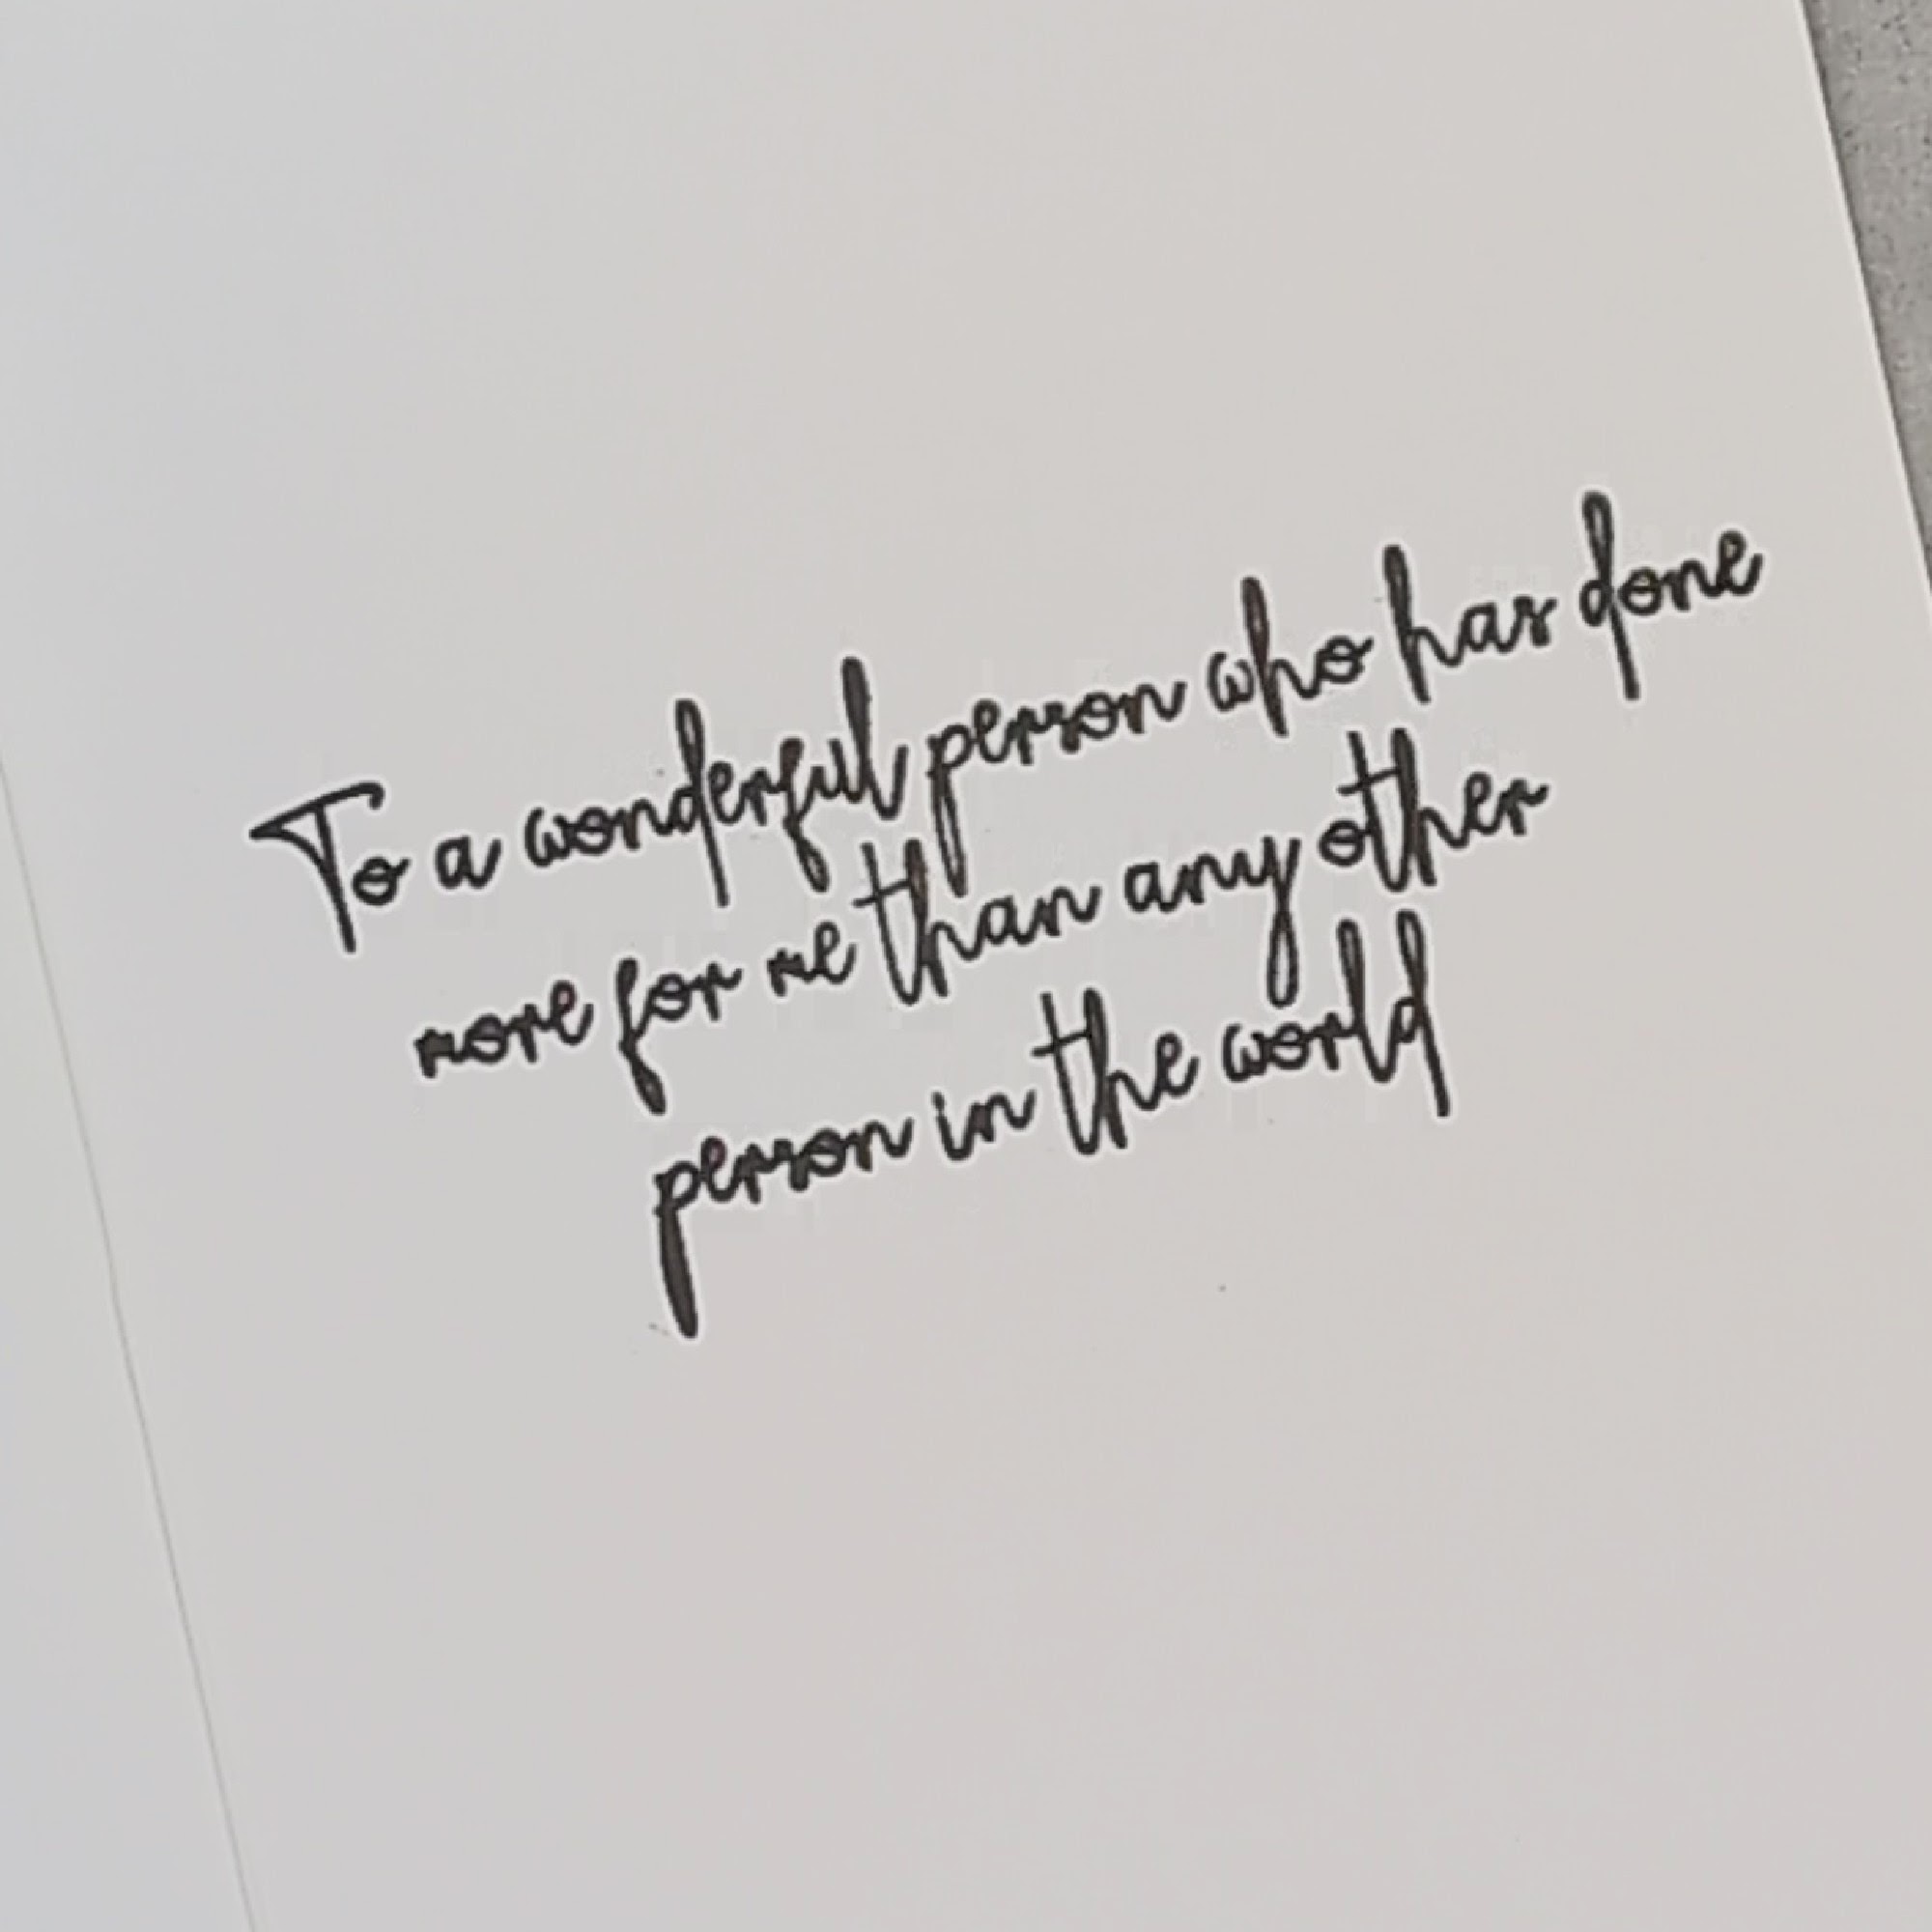 To a wonderful person who has done
more for me than any other
person in the world